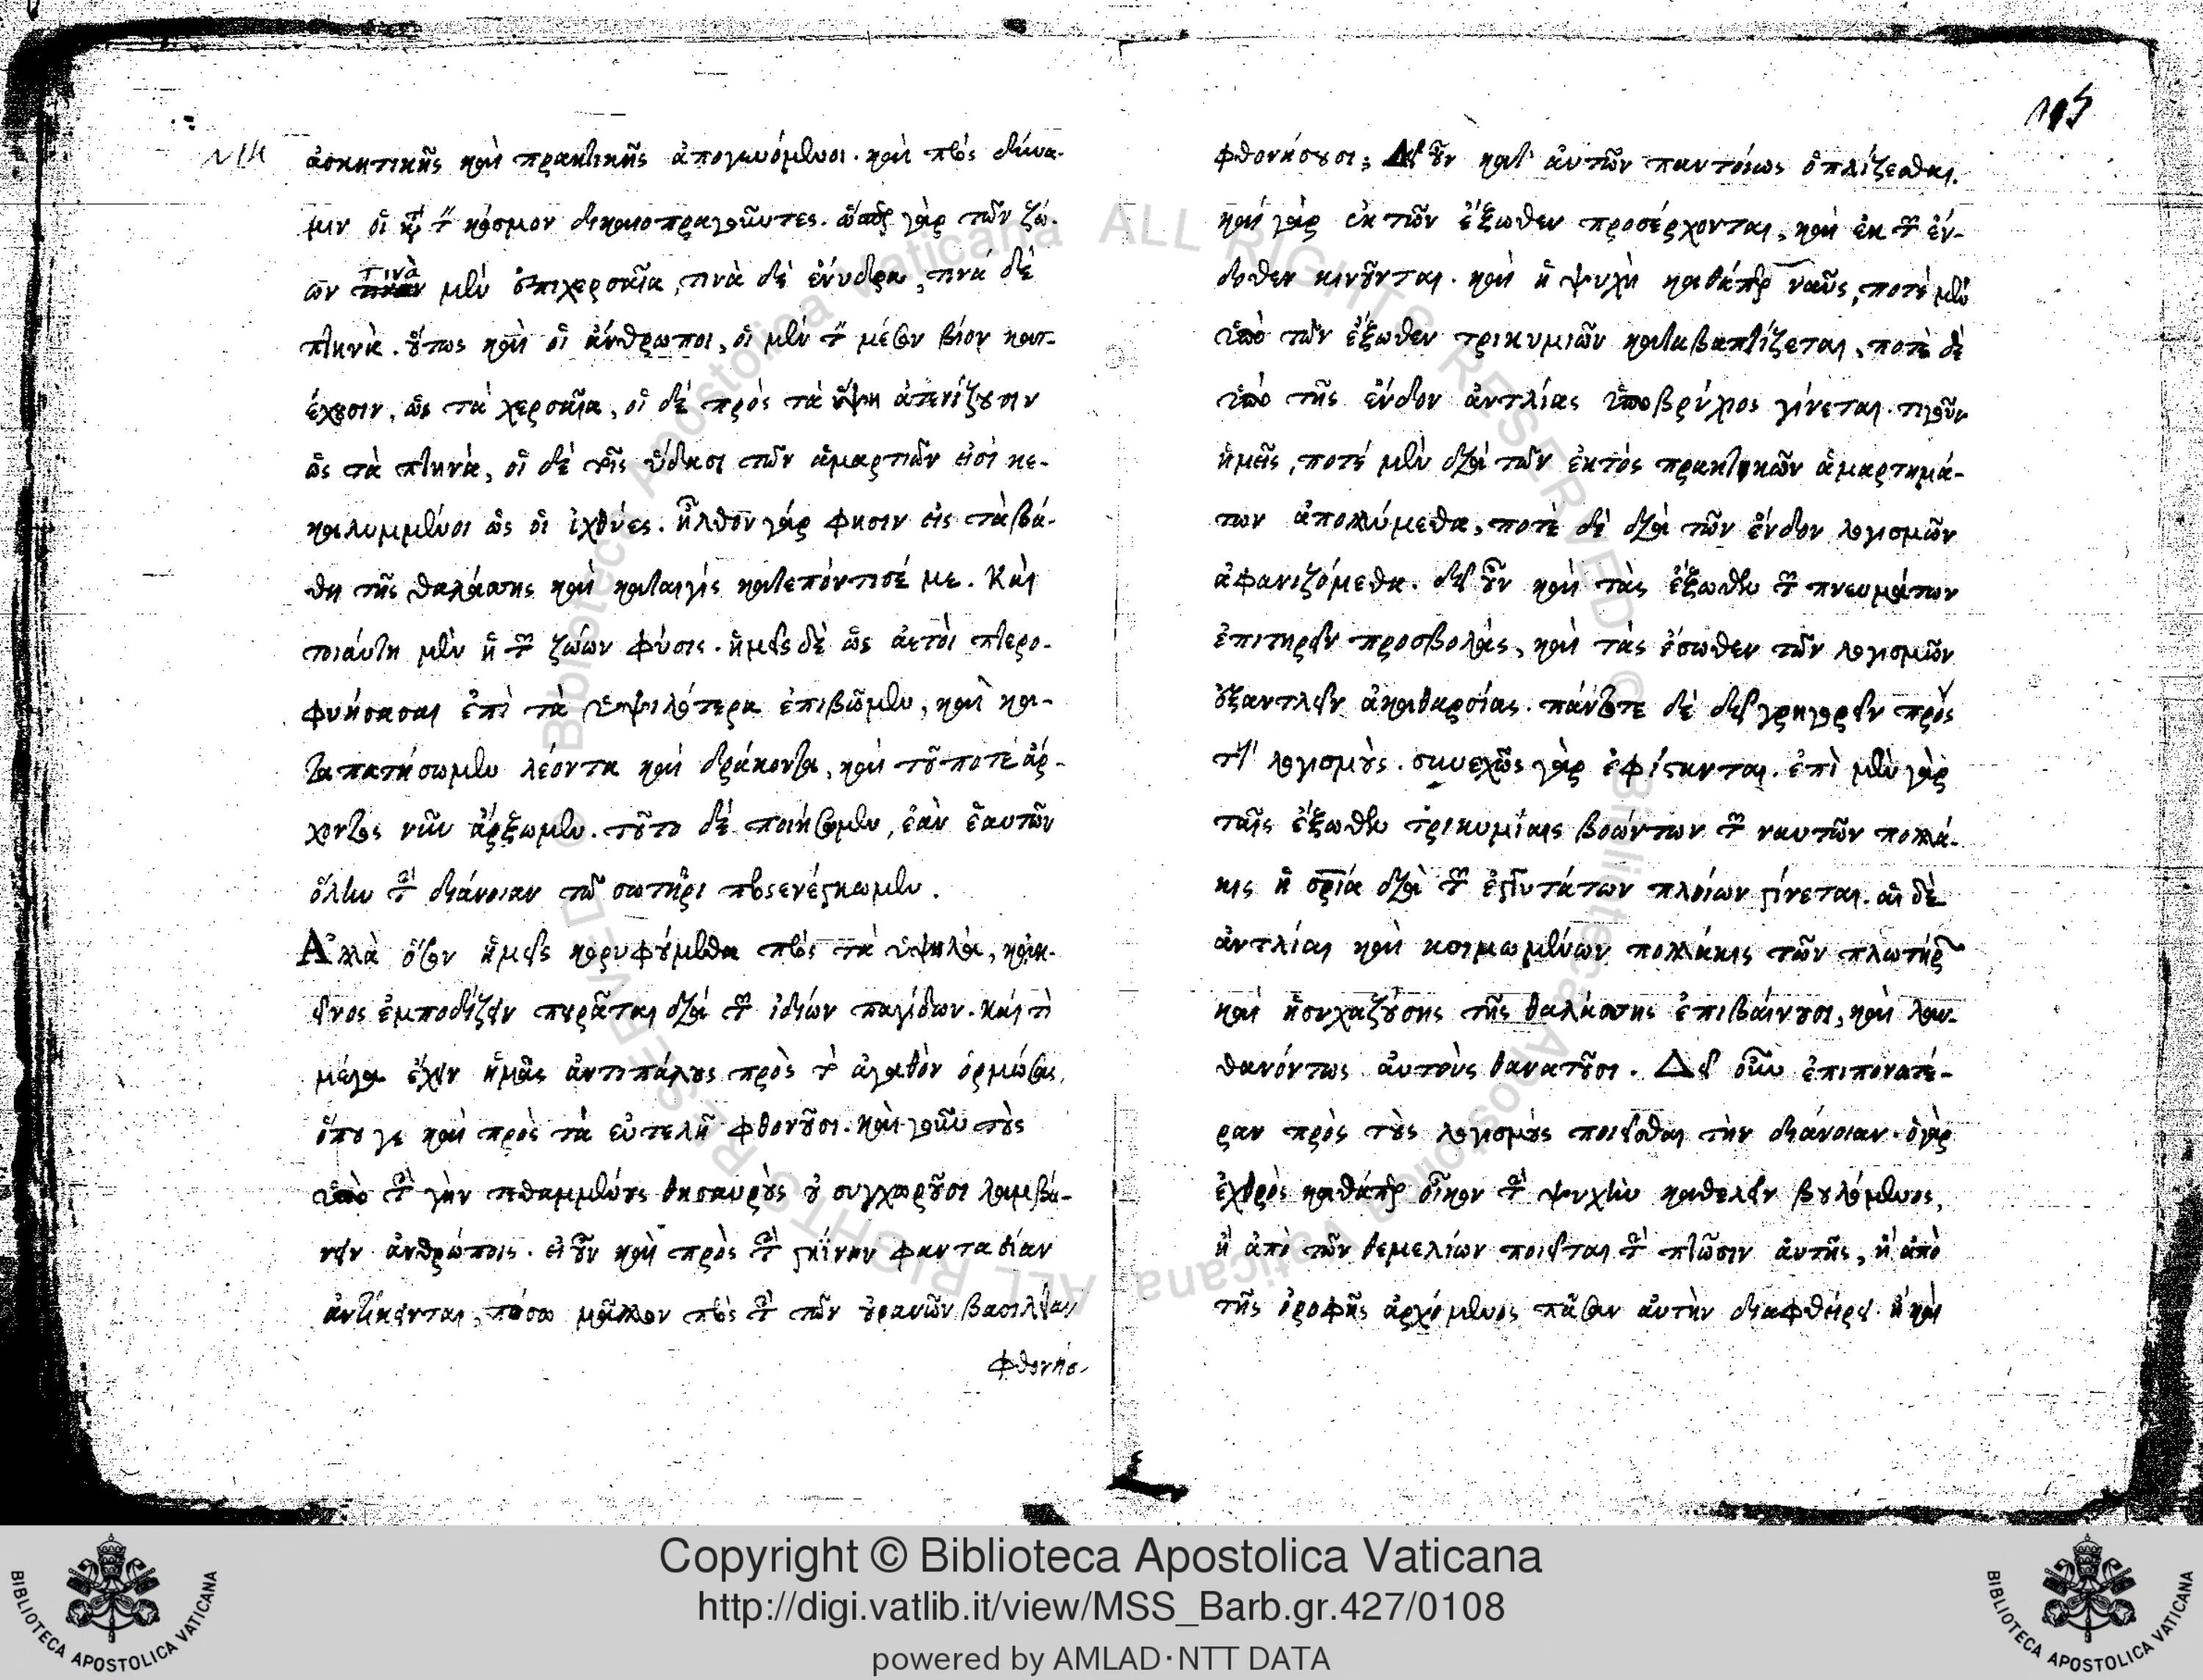 ΝΙΚ
ἀσκητικῆς καὶ πρακτικῆς ἀπογευόμενοι. καὶ πρὸς δύνα-
μιν οἱ κατὰ τὸν κόσμον δικαιοπραγοῦντες. ὥσπερ γὰρ τῶν ζώ-
ων τινὰ μὲν ἐπιχερσαῖα, τινὰ δὲ ἔνυδρα, τινὰ δὲ
πτηνὰ. οὕτως καὶ οἱ ἄνθρωποι, οἱ μὲν τὸν μέσον βίον κατ-
έχουσιν, ὡς τὰ χερσαῖα, οἱ δὲ πρὸς τὰ ὕψη ἀτενίζουσιν
ὡς τὰ πτηνὰ, οἱ δὲ τοῖς ὕδασι τῶν ἁμαρτιῶν εἰσὶ κε-
καλυμμένοι ὡς οἱ ἰχθύες. ἦλθον γάρ φησιν εἰς τὰ βά-
θη τῆς θαλάσσης καὶ καταιγὶς κατεπόντισέ με. Καὶ
τοιαύτη μὲν ἡ τῶν ζώων φύσις. ἡμεῖς δὲ ὡς ἀετοὶ πτερο-
φυήσασαι ἐπὶ τὰ ὑψηλότερα ἐπιβῶμεν, καὶ κα-
ταπατήσωμεν λέοντα καὶ δράκοντα, καὶ τοῦ ποτὲ ἄρ-
χοντος νῦν ἄρξωμεν. τοῦτο δὲ ποιήσωμεν, ἐὰν ἑαυτῶν
ὅλην τὴν διάνοιαν τῷ σωτῆρι προσενέγκωμεν.
Ἀλλὰ ὅσον ἡμεῖς κορυφούμεθα πρὸς τὰ ὑψηλὰ, κἀκ-
εῖνος ἐμποδίζειν πειρᾶται διὰ τῶν ἰδίων παγίδων. καὶ τὶ
μέγα ἔχειν ἡμᾶς ἀντιπάλους πρὸς τὸ ἀγαθὸν ὁρμώσας,
ὅπου γε καὶ πρὸς τὰ εὐτελῆ φθονοῦσι. καὶ γοῦν τοὺς
ὑπὸ τὴν γὴν τεθαμμένους θησαυροὺς οὐ συγχωροῦσι λαμβά-
νειν ἀνθρώποις. εἰ οὖν καὶ πρὸς τὴν γηΐνην φαντασίαν
ἀντίκεινται, πόσω μᾶλλον πρὸς τὴν τῶν οὐρανῶν βασιλείαν
φθονήσ-
φθονήσουσι; Δεῖ οὖν κατ' αὐτῶν παντοίως ὁπλίζεσθαι.
καὶ γὰρ ἐκ τῶν ἔξωθεν προσέρχονται, καὶ ἐκ τῶν ἔν-
δοθεν κινοῦνται. καὶ ἡ ψυχὴ καθάπερ ναῦς, ποτὲ μὲν
ὑπὸ τῶν ἔξωθεν τρικυμιῶν καταβαπτίζεται, ποτὲ δὲ
ὑπὸ τῆς ἔνδον ἀντλίας ὑποβρύχιος γίνεται. τιγοῦν
ἡμεῖς, ποτὲ μὲν διὰ τῶν ἐκτὸς πρακτικῶν ἁμαρτημά-
των ἀπολλύμεθα, ποτὲ δὲ διὰ τῶν ἔνδον λογισμῶν
ἀφανιζόμεθα. δεῖ οὖν καὶ τὰς ἔξωθεν τῶν πνευμάτων
ἐπιτηρεῖν προσβολὰς, καὶ τὰς ἔσωθεν τῶν λογισμῶν
ἐξαντλεῖν ἀκαθαρσίας. πάντοτε δὲ δεῖ γρηγορεῖν πρὸς
τοὺς λογισμοὺς. συνεχῶς γὰρ ἐφίστανται. ἐπὶ μὲν γὰρ
ταῖς ἔξωθεν τρικυμίαις βοώντων τῶν ναυτῶν πολλά-
κις ἡ σωτηρία διὰ τῶν ἐγγυτάτων πλοίων γίνεται. αἱ δὲ
ἀντλίαι καὶ κοιμωμένων πολλάκις τῶν πλωτήρων
καὶ ἡσυχαζούσης τῆς θαλάσσης ἐπιβαίνουσι, καὶ λαν-
θανόντως αὐτοὺς θανατοῦσι. Δεῖ οὖν ἐπιπονωτέ-
ραν πρὸς τοὺς λογισμοὺς ποιεῖσθαι τὴν διάνοιαν. ὁ γὰρ
ἐχθρὸς καθάπερ οἶκον τὴν ψυχὴν καθελεῖν βουλόμενος,
ἢ ἀπὸ τῶν θεμελίων ποιεῖται τὴν πτῶσιν αὐτῆς, ἢ ἀπὸ
τῆς ὀροφῆς ἀρχόμενος πᾶσαν αὐτὴν διαφθείρει. ἢ καὶ
Copyright © Biblioteca Apostolica Vaticana
http://digi.vatlib.it/view/MSS_Barb.gr.427/0108
powered by AMLAD·NTT DATA
BIBLIOTECA APOSTOLICA VATICANA
BIBLIOTECA APOSTOLICA VATICANA